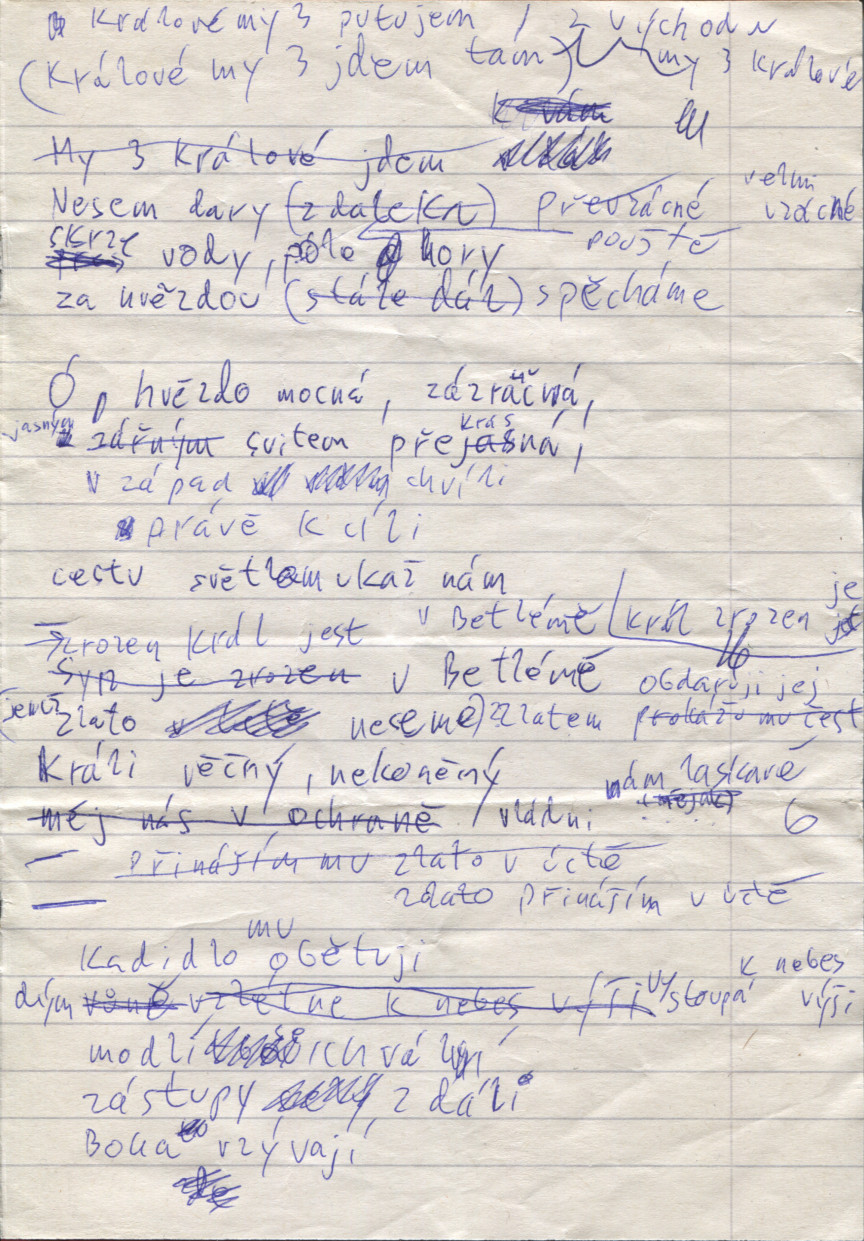 Králové my 3 putujem / z východu
(Králové my 3 jdem tam) my 3 králové
k vám
My 3 králové jdem
Nesem dary (z daleka) převzácné velmi vzácné
skrze vody, pole hory pouště
za hvězdou (stále dál) spěcháme
Ó, hvězdo mocná, zázračná,
jasným zářným svitem překrásná,
v západ chvíli
právě k cíli
cestu světlem ukaž nám
zrozen král jest v Betlémě král zrozen je
Syn je zrozen v Betlémě obdaruji jej
(jemuž zlato neseme) zlatem prokážu mu čest
Králi věčný, nekonečný
měj nás v ochraně / vládni nám laskavě
6
přináším mu zlato v úctě
zlato přináším v úctě
Kadidlo mu obětuji
dým vůně vzlétne k nebes výši vystoupá k nebes výši
modlí i chválí
zástupy z dáli
Boha vzývají